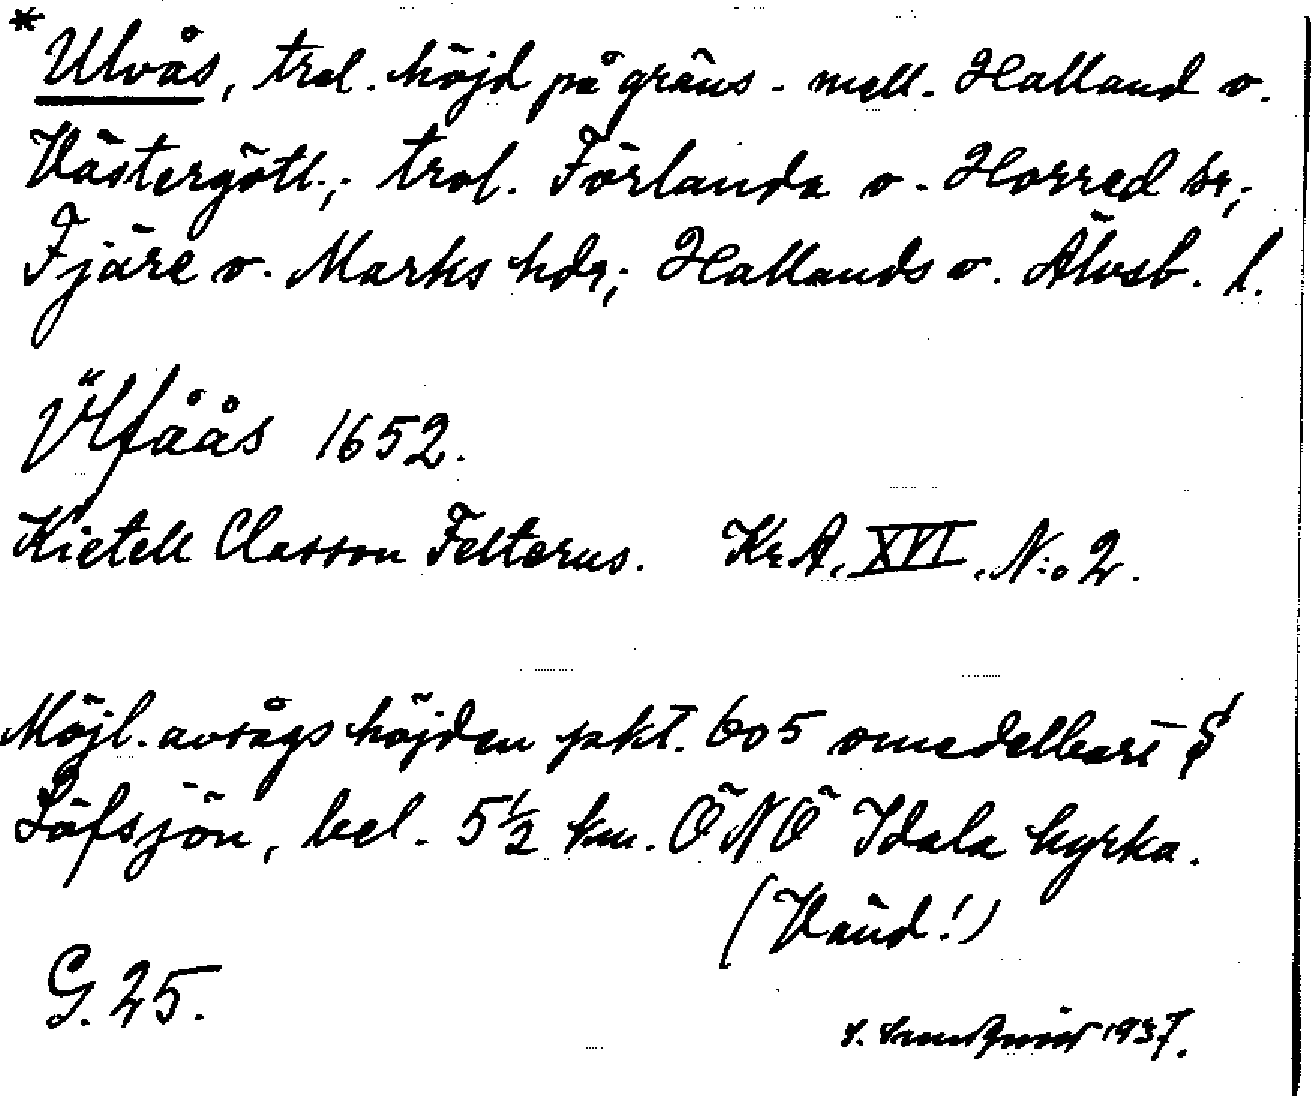 *Ulvås, trol. höjd på gräns. mell. Halland o.
Västergötl.; trol. Förlanda o. Horred sr;
Fjäre o. Marks hdr; Hallands o. Älvsb. l.
Ülfåås 1652.
Kietell Classon Felterus. KrA. XVI. N:o 2.
Möjl. avsågs höjden pkt. 605 omedelbart S
Löfsjön, bel. 5½ km. ÖNÖ Idala kyrka.
(Vänd!)
G. 25.
1937.